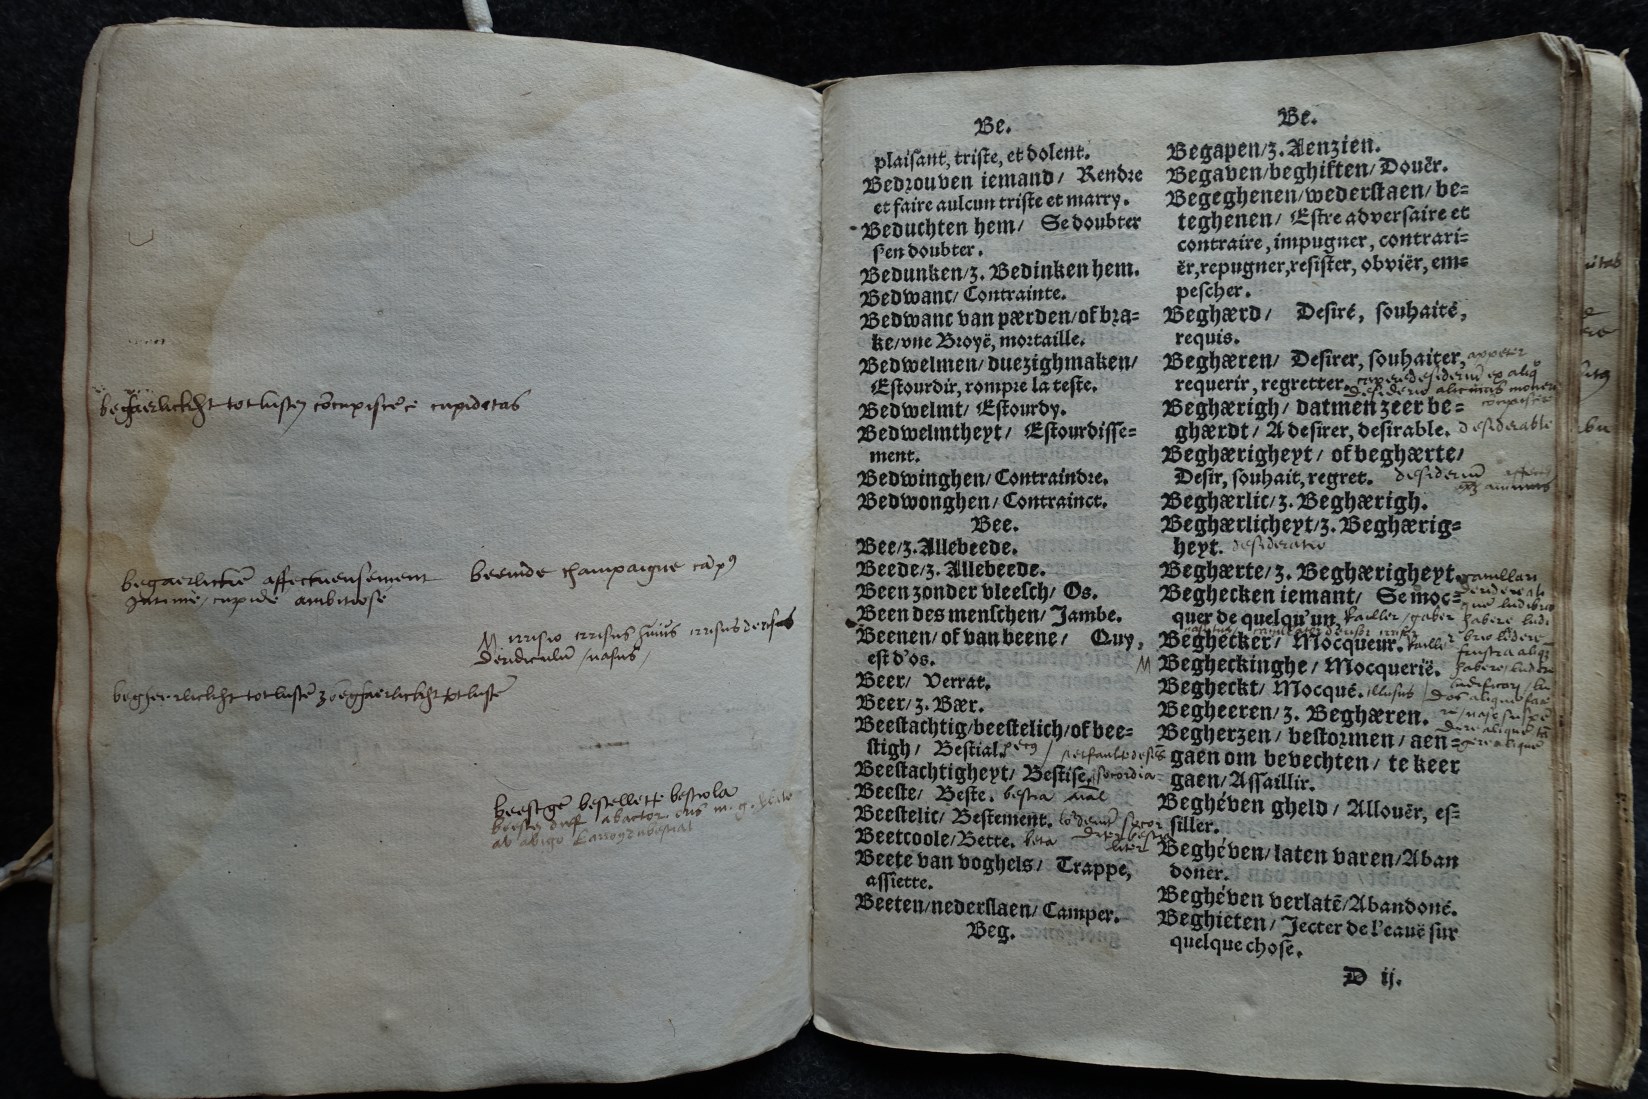 begaerlickht tot lusten cōcupiscēce cupiditas
begaerlickē affectueusement
intime / cupide ambitiose
beemde champaigne cāpꝰ
M irrisio irrisus
Deridiculū / nasus /
begheerlickht tot lustē z begaerlickht tot lustē
beestgē bestellette bestiola
Be.
plaisant, triste, et dolent.
Bedrouven iemand / Rendre
et faire aulcun triste et marry.
Beduchten hem / Se doubter
s'en doubter.
Bedunken / z. Bedinken hem.
Bedwanc / Contrainte.
Bedwanc van pærden / of bra=
ke / vne Broyë, mortaille.
Bedwelmen / duezighmaken /
Estourdir, rompre la teste.
Bedwelmt / Estourdy.
Bedwelmtheyt / Estourdisse=
ment.
Bedwinghen / Contraindre.
Bedwonghen / Contrainct.
Bee.
Bee / z. Allebeede.
Beede / z. Allebeede.
Been zonder vleesch / Os.
Been des menschen / Jambe.
Beenen / of van beene / Quy,
est d'os.
Beer / Verrat.
Beer / z. Bær.
Beestachtig / beestelich / of bee=
stigh / Bestial.
Beestachtigheyt / Bestise. socordia
Beeste / Beste. bestia
Beestelic / Bestement.
Beetcoole / Bette. beta
Beete van voghels / Trappe,
assiette.
Beeten / nederslaen / Camper.
Beg.
Be.
Begapen / z. Aenzien.
Begaven / beghiften / Douër.
Begeghenen / wederstaen / be=
teghenen / Estre adversaire et
contraire, impugner, contrari=
ër, repugner, resister, obviër, em=
pescher.
Beghærd / Desiré, souhaité,
requis.
Beghæren / Desirer, souhaiter, appeter
requerir, regretter.
Beghærigh / datmen zeer be=
ghærdt / A desirer, desirable. desiderable
Beghærigheyt / of beghærte /
Desir, souhait, regret. desideriū
Beghærlic / z. Beghærigh.
Beghærlicheyt / z. Beghærig=
heyt. desideratio
Beghærte / z. Beghærigheyt.
Beghecken iemant / Se moc=
quer de quelqu'un. Railler / gaber
Beghecker / Mocqueur.
M Begheckinghe / Mocquerië.
Begheckt / Mocqué. illusus
Begheeren / z. Beghæren.
Begherzen / bestormen / aen=
gaen om bevechten / te keer
gaen / Assaillir.
Beghéven gheld / Allouër, es=
siller.
Beghéven / laten varen / Aban
doner.
Beghéven verlatē / Abandoné.
Beghieten / Jecter de l'eauë sur
quelque chose.
D ij.